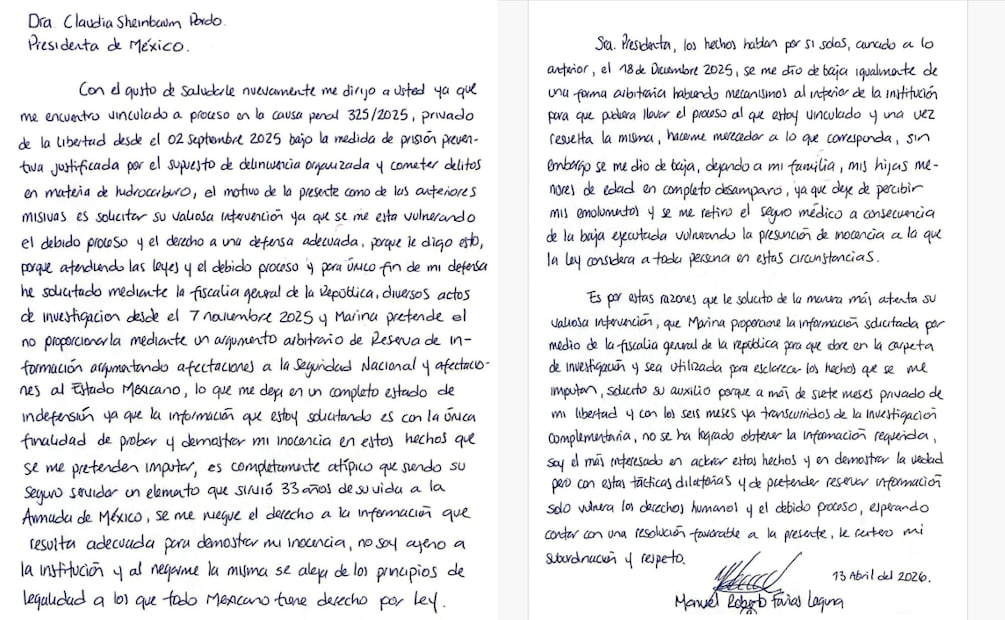 Dra Claudia Sheinbaum Pardo.
Presidenta de México.
Con el gusto de saludarle nuevamente me dirijo a Usted ya que
me encuentro vinculado a proceso en la causa penal 325/2025, privado
de la libertad desde el 02 septiembre 2025 bajo la medida de prisión preven-
tiva justificada por el supuesto de delincuencia organizada y cometer delitos
en materia de hidrocarburo, el motivo de la presente como de las anteriores
misivas es solicitar su valiosa intervención ya que se me esta vulnerando
el debido proceso y el derecho a una defensa adecuada, porque le digo esto,
porque atendiendo las leyes y el debido proceso y para único fin de mi defensa
he solicitado mediante la fiscalia general de la República, diversos actos
de investigacion desde el 7 noviembre 2025 y Marina pretende el
no proporcionarla mediante un argumento arbitrario de Reserva de in-
formación argumentando afectaciones a la Seguridad Nacional y afectacio-
nes al Estado Mexicano, lo que me deja en un completo estado de
indefensión ya que la información que estoy solicitando es con la única
finalidad de probar y demostrar mi inocencia en estos hechos que
se me pretenden imputar, es completamente atípico que siendo su
Seguro servidor un elemento que sirvió 33 años de su vida a la
Armada de México, se me niegue el derecho a la información que
resulta adecuada para demostrar mi inocencia, no soy ajeno a
la institución y al negarme la misma se aleja de los principios de
legalidad a los que todo Mexicano tiene derecho por Ley.
Sra. Presidenta, los hechos hablan por si solos, aunado a lo
anterior, el 18 de Diciembre 2025, se me dio de baja igualmente de
una forma arbitraria habiendo mecanismos al interior de la institución
para que pudiera llevar el proceso al que estoy vinculado y una vez
resuelta la misma, hacerme merecedor a lo que corresponda, sin
embargo se me dio de baja, dejando a mi familia, mis hijas me-
nores de edad en completo desamparo, ya que deje de percibir
mis emolumentos y se me retiro el seguro médico a consecuencia
de la baja ejecutada vulnerando la presunción de inocencia a la que
la Ley considera a toda persona en estas circunstancias.
Es por estas razones que le solicito de la manera más atenta su
valiosa intervención, que Marina proporcione la información solicitada por
medio de la fiscalia general de la república para que obre en la carpeta
de investigación y sea utilizada para esclarecer los hechos que se me
imputan, solicito su auxilio porque a más de siete meses privado de
mi libertad y con los seis meses ya transcurridos de la Investigación
Complementaria, no se ha logrado obtener la información requerida,
soy el más interesado en aclarar estos hechos y en demostrar la verdad
pero con estas tácticas dilatorias y de pretender reservar información
solo vulnera los derechos humanos y el debido proceso, esperando
contar con una resolución favorable a la presente, le reitero mi
subordinación y respeto.
13 Abril del 2026.
Manuel Roberto Farias Laguna